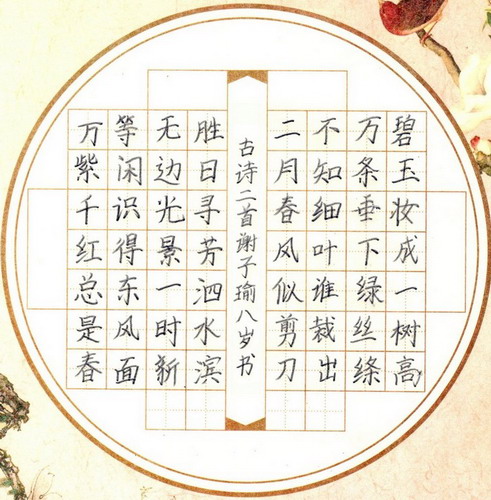 碧玉妆成一树高
万条垂下绿丝绦
不知细叶谁裁出
二月春风似剪刀
古诗二首谢子瑜八岁书
胜日寻芳泗水滨
无边光景一时新
等闲识得东风面
万紫千红总是春